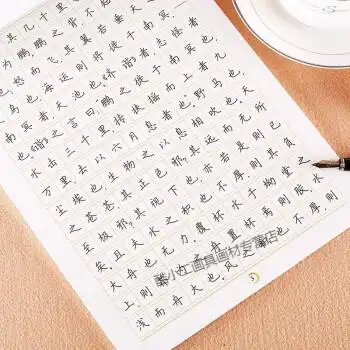 其几千里
为鹏。鹏之背,不
怒而飞,其翼若垂天
鸟也,海运则将徙于南冥
南冥者,天池也。《齐谐》者,志怪者
也。《谐》之言曰:“鹏之徙于南冥也,
水击三千里,抟扶摇而上者九
万里,去以六月息者也。”野马也,
尘埃也,生物之以息相吹也。天
之苍苍,其正色邪?其远而无所
至极邪?其视下也,亦若是则已
矣。且夫水之积也不厚,则其负
大舟也无力。覆杯水于坳堂之
上,则芥为之舟,置杯焉则胶,水
浅而舟大也。风之积也不厚,则